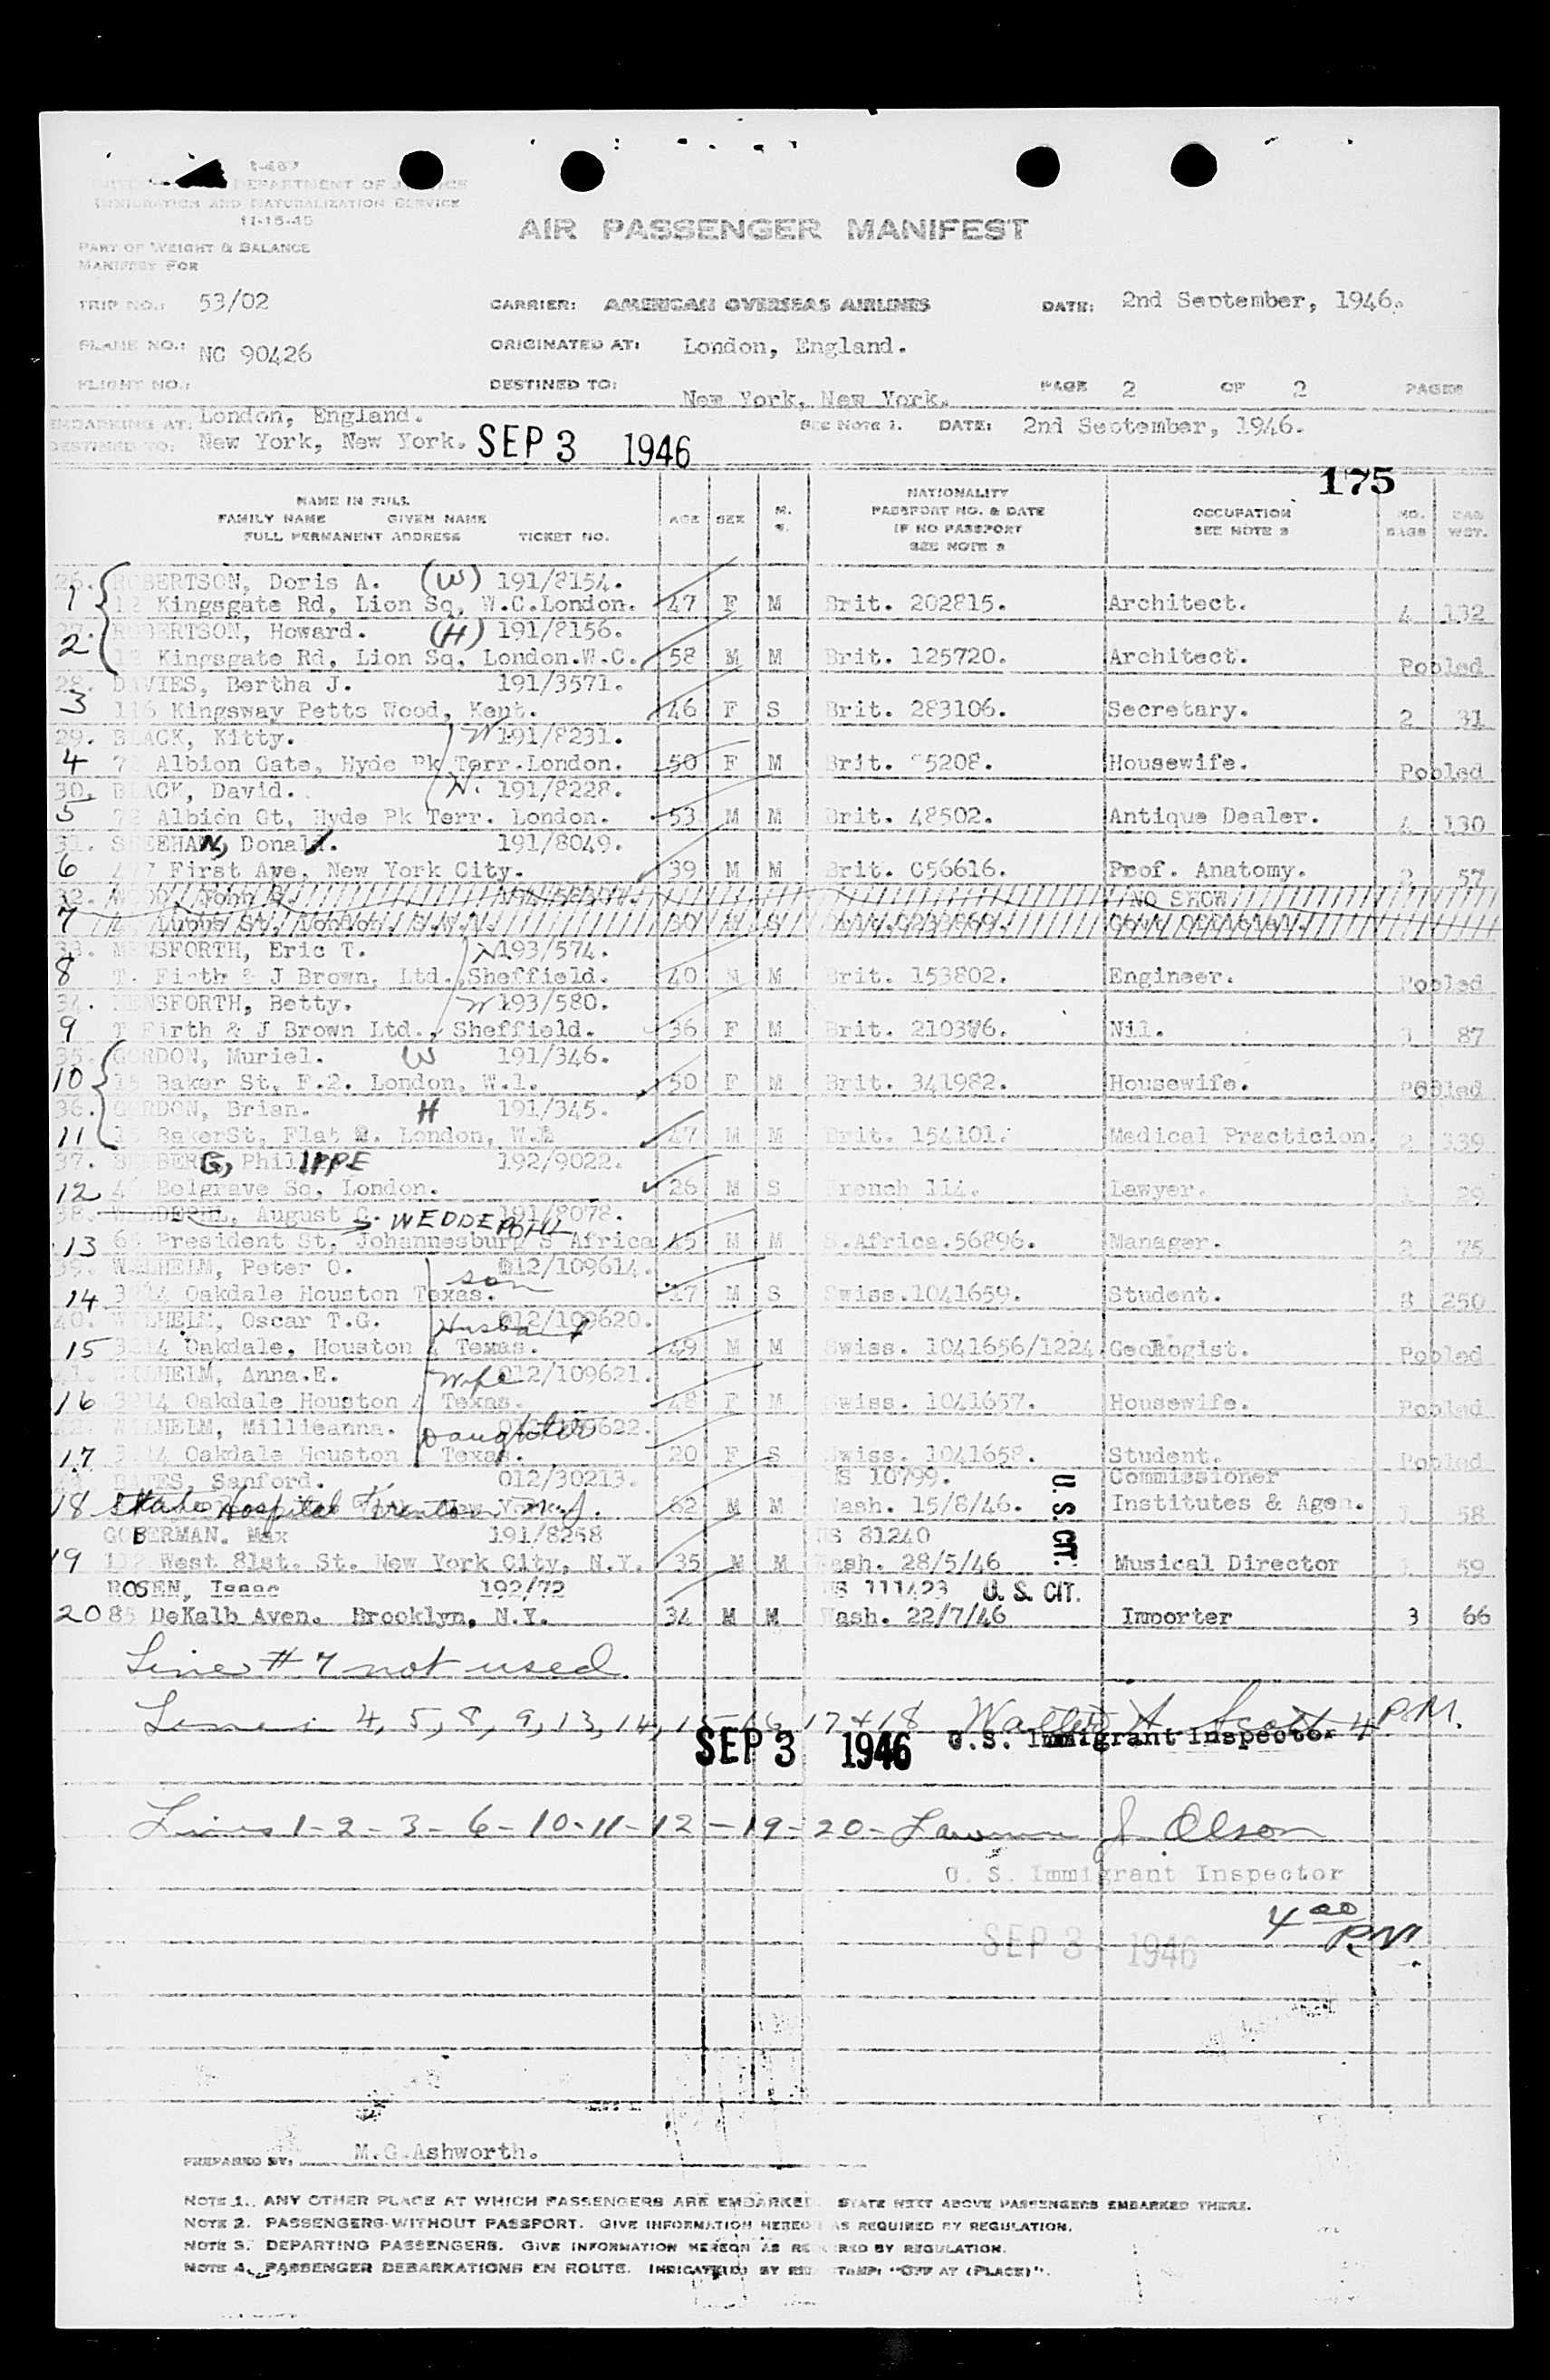 I-467
DEPARTMENT OF JUSTICE
IMMIGRATION AND NATURALIZATION SERVICE
11-15-45
PART OF WEIGHT & BALANCE
MANIFEST FOR
AIR PASSENGER MANIFEST
TRIP NO.: 53/02 CARRIER: AMERICAN OVERSEAS AIRLINES DATE: 2nd September, 1946.
PLANE NO.: NC 90426 ORIGINATED AT: London, England.
FLIGHT NO.: DESTINED TO: New York, New York. PAGE 2 OF 2 PAGES
EMBARKING AT: London, England. SEE NOTE 1. DATE: 2nd September, 1946.
DESTINED TO: New York, New York. SEP 3 1946
175
NAME IN FULL
FAMILY NAME GIVEN NAME
FULL PERMANENT ADDRESS TICKET NO.
AGE SEX M. S.
NATIONALITY
PASSPORT NO. & DATE
IF NO PASSPORT
SEE NOTE 2
OCCUPATION
SEE NOTE 3
NO. BAGS BAG WGT.
26. ROBERTSON, Doris A. (W) 191/8154.
1 12 Kingsgate Rd, Lion Sq, W.C.London. 47 F M Brit. 202815. Architect. 4 132
27. ROBERTSON, Howard. (H) 191/8156.
2 12 Kingsgate Rd, Lion Sq, London.W.C. 58 M M Brit. 125720. Architect. Pooled
28. DAVIES, Bertha J. 191/3571.
3 116 Kingsway Petts Wood, Kent. 46 F S Brit. 283106. Secretary. 2 31
29. BLACK, Kitty. W 191/8231.
4 Albion Gate, Hyde Pk Terr.London. 50 F M Brit. 5208. Housewife. Pooled
30. BLACK, David. H. 191/8228.
5 Albion Gt, Hyde Pk Terr. London. 53 M M Brit. 48502. Antique Dealer. 4 130
31. SHEEHAN, Donal. 191/8049.
6 477 First Ave, New York City. 39 M M Brit. C56616. Prof. Anatomy. 57
32. John NO SHOW
7 London
33. MENSFORTH, Eric T. H 193/574.
8 T. Firth & J Brown, Ltd., Sheffield. 40 M M Brit. 153802. Engineer. Pooled
34. MENSFORTH, Betty. W 193/580.
9 T Firth & J Brown Ltd., Sheffield. 36 F M Brit. 210376. Nil. 3 87
35. GORDON, Muriel. W 191/346.
10 15 Baker St, F.2. London, W.1. 50 F M Brit. 341982. Housewife. Pooled
36. GORDON, Brian. H 191/345.
11 15 BakerSt, Flat 2. London, W.1 47 M M Brit. 154101. Medical Practicion. 2 339
37. G, PhilIPPE 192/9022.
12 Belgrave Sq, London. 26 M S French 114. Lawyer. 29
38. August G. WEDDEPOHL 191/8078.
13 President St, Johannesburg S Africa 45 M M S.Africa.56896. Manager. 2 75
39. WILHELM, Peter O. son 012/109614.
14 3214 Oakdale Houston Texas. 17 M S Swiss.1041659. Student. 8 250
40. WILHELM, Oscar T.G. Husband 012/109620.
15 3214 Oakdale, Houston Texas. 49 M M Swiss. 1041656/1224 Geologist. Pooled
41. WILHELM, Anna.E. Wife 012/109621.
16 3214 Oakdale Houston Texas. 48 F M Swiss. 1041657. Housewife. Pooled
42. WILHELM, Millieanna. Daughter 012/109622.
17 3214 Oakdale Houston Texas. 20 F S Swiss. 1041658. Student. Pooled
43. BATES, Sanford. 012/30213. US 10799. Commissioner
18 State Hospital Trenton N.J. 62 M M Wash. 15/8/46. U.S. CIT. Institutes & Agen. 1 58
GOBERMAN. Max 191/8258 US 81240
19 112 West 81st. St. New York City, N.Y. 35 M M Wash. 28/5/46 Musical Director 1 59
ROSEN, Isaac 192/72 US 111423 U. S. CIT.
20 85 DeKalb Aven. Brooklyn, N.Y. 34 M M Wash. 22/7/46 Importer 3 66
Line # 7 not used.
Lines 4, 5, 8, 9, 13, 14, 15 16 17 + 18 Walter A Scott 4 P.M.
SEP 3 1946 U.S. Immigrant Inspector
Lines 1-2-3-6-10-11-12-19-20- Lawrence J Olson
U. S. Immigrant Inspector
4 00 P.M.
SEP 3 1946
PREPARED BY: M.G.Ashworth.
NOTE 1. ANY OTHER PLACE AT WHICH PASSENGERS ARE EMBARKED. STATE NEXT ABOVE PASSENGERS EMBARKED THERE.
NOTE 2. PASSENGERS WITHOUT PASSPORT. GIVE INFORMATION HEREON AS REQUIRED BY REGULATION.
NOTE 3. DEPARTING PASSENGERS. GIVE INFORMATION HEREON AS REQUIRED BY REGULATION.
NOTE 4. PASSENGER DEBARKATIONS EN ROUTE. INDICATE(D) BY STAMP: "OFF AT (PLACE)".